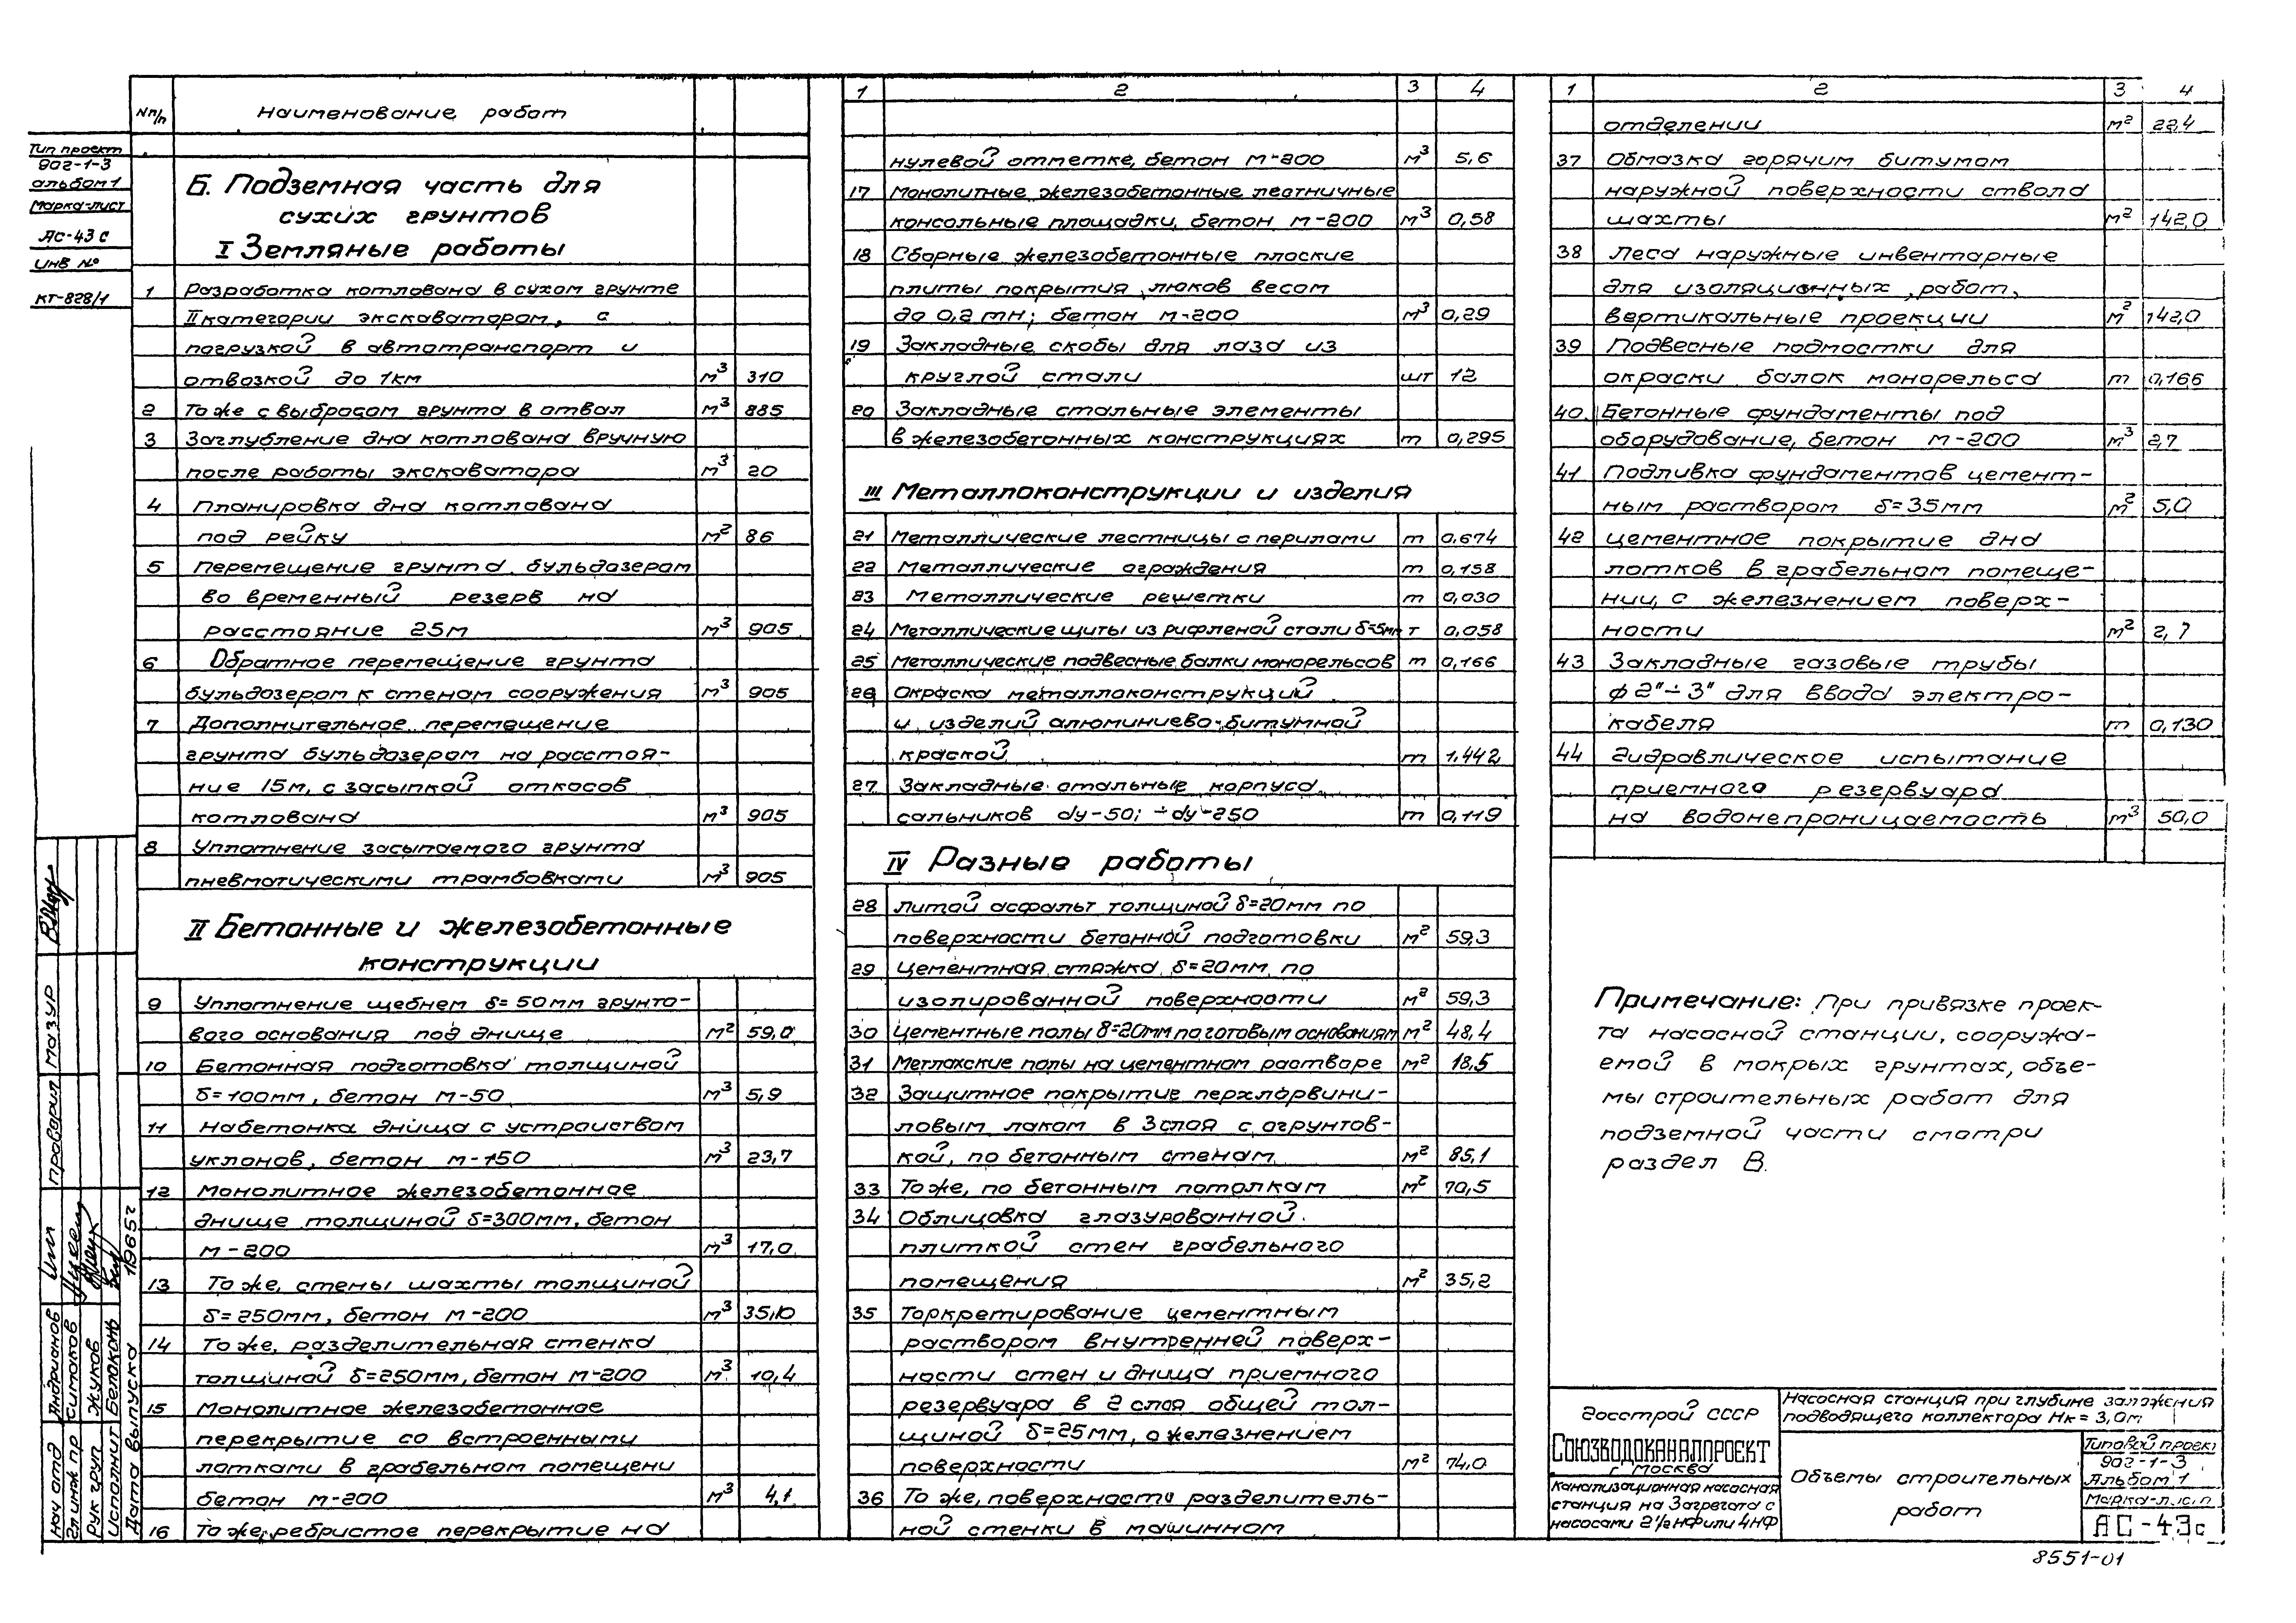 Тип проект
902-1-3
альбом 1
Марка-лист
АС-43 с
инв №
КТ-828/1
N п/п Наименование работ
Б. Подземная часть для
сухих грунтов
I Земляные работы
1 Разработка котлована в сухом грунте
II категории экскаватором, с
погрузкой в автотранспорт и
отвозкой до 1км м3 310
2 То же с выбросом грунта в отвал м3 885
3 Заглубление дна котлована вручную
после работы экскаватора м3 20
4 Планировка дна котлована
под рейку м2 86
5 Перемещение грунта бульдозером
во временный резерв на
расстояние 25м м3 905
6 Обратное перемещение грунта
бульдозером к стенам сооружения м3 905
7 Дополнительное перемещение
грунта бульдозером на расстоя-
ние 15м, с засыпкой откосов
котлована м3 905
8 Уплотнение засыпаемого грунта
пневматическими трамбовками м3 905
II Бетонные и железобетонные
конструкции
9 Уплотнение щебнем δ=50мм грунто-
вого основания под днище м2 59,0
10 Бетонная подготовка толщиной
δ=100мм, бетон м-50 м3 5,9
11 Набетонка днища с устроиством
уклонов, бетон м-150 м3 23,7
12 Монолитное железобетонное
днище толщиной δ=300мм, бетон
м-200 м3 17,0
13 То же, стены шахты толщиной
δ=250мм, бетон м-200 м3 35,10
14 То же, разделительная стенка
толщиной δ=250мм, бетон м-200 м3 10,4
15 Монолитное железобетонное
перекрытие со встроенными
лотками в грабельном помещени
бетон м-200 м3 4,1
16 То же, ребристое перекрытие на
1 2 3 4
нулевой отметке, бетон м-200 м3 5,6
17 Монолитные железобетонные лестничные
консольные площадки, бетон м-200 м3 0,58
18 Сборные железобетонные плоские
плиты покрытия люков весом
до 0,2 тн; бетон м-200 м3 0,29
19 Закладные скобы для лаза из
круглой стали шт 12
20 Закладные стальные элементы
в железобетонных конструкциях т 0,295
III Металлоконструкции и изделия
21 Металлические лестницы с перилами т 0,674
22 Металлические ограждения т 0,158
23 Металлические решетки т 0,030
24 Металлические щиты из рифленой стали δ=5мм т 0,058
25 Металлические подвесные балки монорельсов т 0,166
26 Окраска металлоконструкций
и изделий алюминиево-битумной
краской т 1,442
27 Закладные стальные корпуса
сальников dу-50; ÷ dу-250 т 0,119
IV Разные работы
28 Литой асфальт толщиной δ=20мм по
поверхности бетонной подготовки м2 59,3
29 Цементная стяжка δ=20мм по
изолированной поверхности м2 59,3
30 Цементные полы δ=20мм по готовым основаниям м2 48,4
31 Метлахские полы на цементном растворе м2 18,5
32 Защитное покрытие перхлорвини-
ловым лаком в 3 слоя с огрунтов-
кой, по бетонным стенам м2 85,1
33 То же, по бетонным потолкам м2 70,5
34 Облицовка глазурованной
плиткой стен грабельного
помещения м2 35,2
35 Торкретирование цементным
раствором внутренней поверх-
ности стен и днища приемного
резервуара в 2 слоя общей тол-
щиной δ=25мм, с железнением
поверхности м2 74,0
36 То же, поверхности разделитель-
ной стенки в машинном
1 2 3 4
отделении м2 22,4
37 Обмазка горячим битумом
наружной поверхности ствола
шахты м2 142,0
38 Леса наружные инвентарные
для изоляционных работ,
вертикальные проекции м2 142,0
39 Подвесные подмостки для
окраски балок монорельса т 0,166
40 Бетонные фундаменты под
оборудование, бетон м-200 м3 2,7
41 Подливка фундаментов цемент-
ным раствором δ=35мм м2 5,0
42 цементное покрытие дна
лотков в грабельном помеще-
нии, с железнением поверх-
ности м2 2,7
43 Закладные газовые трубы
ф 2"÷3" для ввода электро-
кабеля т 0,130
44 гидравлическое испытание
приемного резервуара
на водонепроницаемость м3 50,0
Примечание: При привязке проек-
та насосной станции, сооружа-
емой в мокрых грунтах, объе-
мы строительных работ для
подземной части смотри
раздел В.
Госстрой СССР
Союзводоканалпроект
г Москва
Канализационная насосная
станция на 3 агрегата с
насосами 2½НФ или 4НФ
Насосная станция при глубине заложения
подводящего коллектора Нк=3,0м
Объемы строительных
работ
Типовой проект
902-1-3
Альбом 1
Марка-лист
АС-43с
8551-01
нач отд Андрианов
гл инж пр Симаков
рук груп Жуков
Исполнит
Дата выпуска 1965г
проверил Мазур